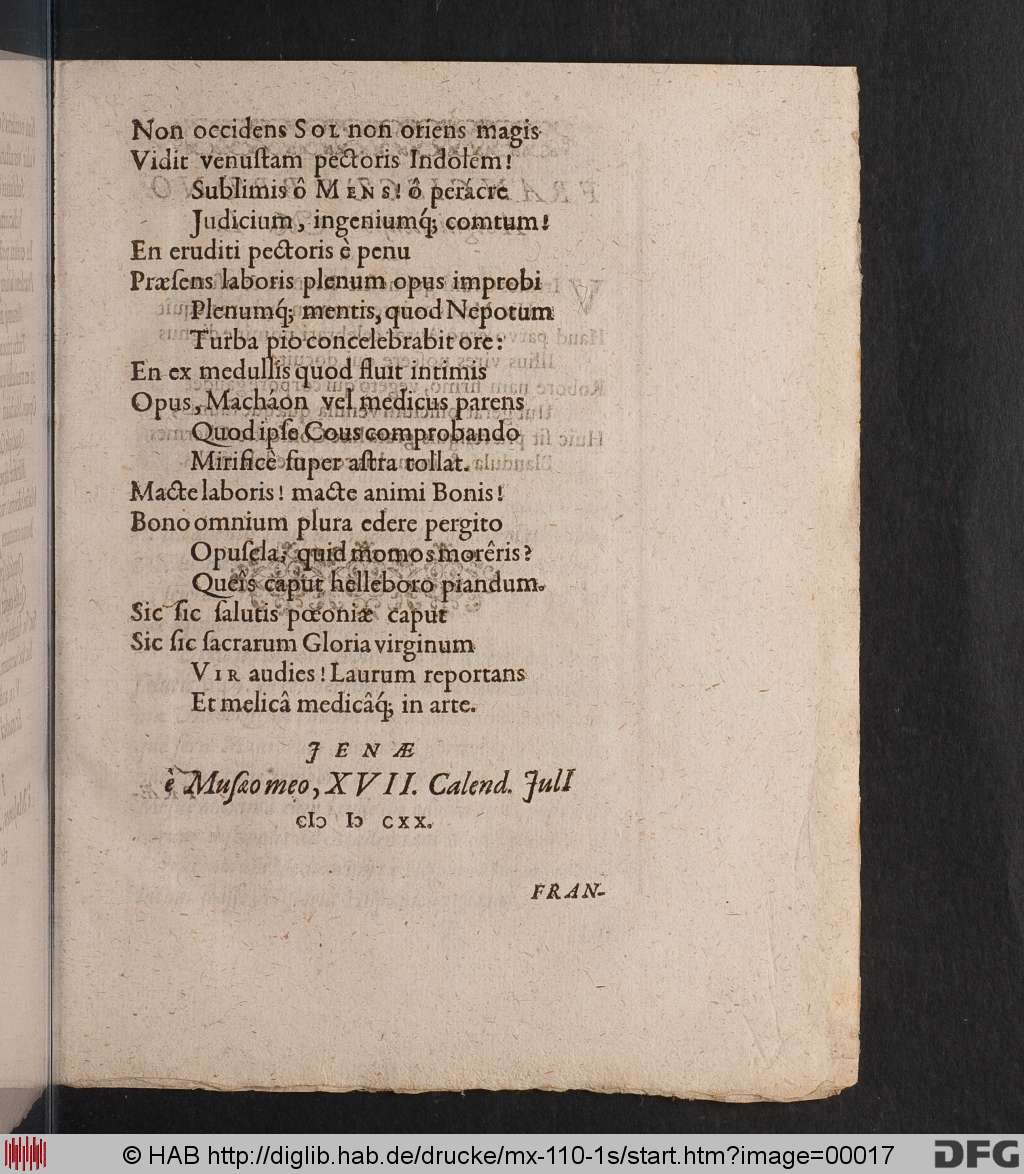 Non occidens SOL non oriens magis
Vidit venuſtam pectoris Indolem!
Sublimis ô MENS! ô perácre
Judicium, ingeniumq́; comtum!
En eruditi pectoris è penu
Præſens laboris plenum opus improbi
Plenumq́; mentis, quod Nepotum
Turba pio concelebrabit ore:
En ex medullis quod fluit intimis
Opus, Macháon vel medicus parens
Quod ipſe Cous comprobando
Mirificè ſuper aſtra tollat.
Macte laboris! macte animi Bonis!
Bono omnium plura edere pergito
Opuſcla; quid momos morêris?
Queîs caput helleboro piandum.
Sic ſic ſalutis pœoniæ caput
Sic ſic ſacrarum Gloria virginum
VIR audies! Laurum reportans
Et melicâ medicâq́; in arte.
JENÆ
è Muſæo meo, XVII. Calend. JulI
cIɔ Iɔ cxx.
FRAN-
© HAB http://diglib.hab.de/drucke/mx-110-1s/start.htm?image=00017
DFG